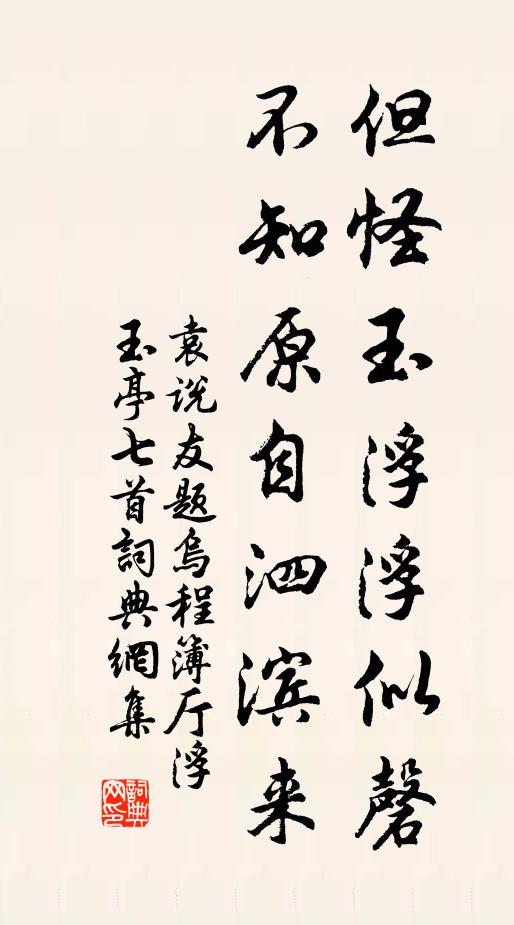 但怪玉浮浮似磬
不知原自泗滨来
袁说友题乌程簿厅浮
玉亭七首詞典網集
詞典網印